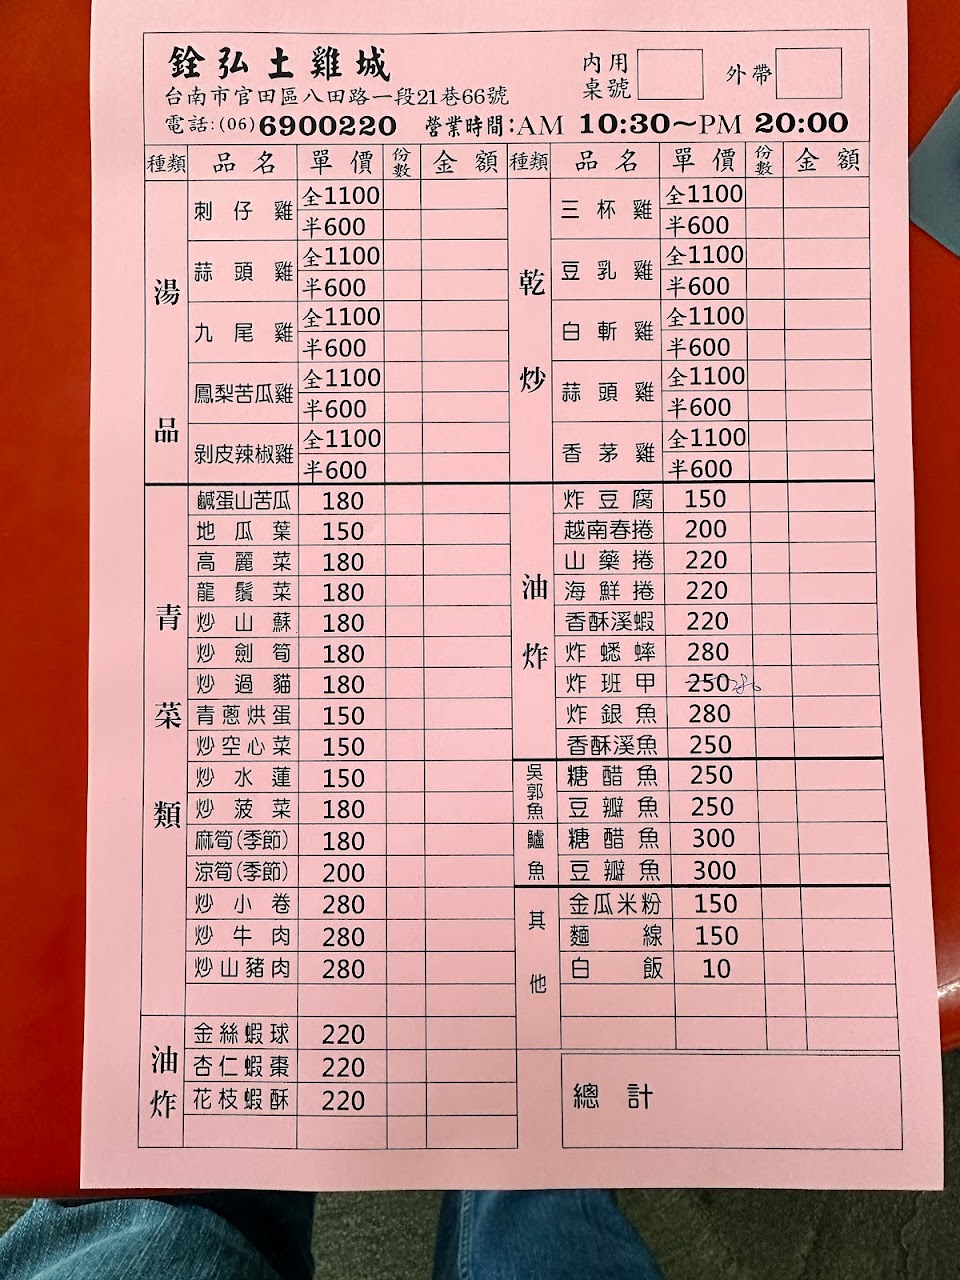 銓弘土雞城
台南市官田區八田路一段21巷66號
電話:(06)6900220 營業時間:AM 10:30~PM 20:00
內用桌號
外帶
種類 品名 單價 份數 金額
湯品
刺仔雞 全1100
半600
蒜頭雞 全1100
半600
九尾雞 全1100
半600
鳳梨苦瓜雞 全1100
半600
剝皮辣椒雞 全1100
半600
青菜類
鹹蛋山苦瓜 180
地瓜葉 150
高麗菜 180
龍鬚菜 180
炒山蘇 180
炒劍筍 180
炒過貓 180
青蔥烘蛋 150
炒空心菜 150
炒水蓮 150
炒菠菜 180
麻筍(季節) 180
涼筍(季節) 200
炒小卷 280
炒牛肉 280
炒山豬肉 280
油炸
金絲蝦球 220
杏仁蝦棗 220
花枝蝦酥 220
種類 品名 單價 份數 金額
乾炒
三杯雞 全1100
半600
豆乳雞 全1100
半600
白斬雞 全1100
半600
蒜頭雞 全1100
半600
香茅雞 全1100
半600
油炸
炸豆腐 150
越南春捲 200
山藥捲 220
海鮮捲 220
香酥溪蝦 220
炸蟋蟀 280
炸班甲 250 280
炸銀魚 280
香酥溪魚 250
吳郭魚
糖醋魚 250
豆瓣魚 250
鱸魚
糖醋魚 300
豆瓣魚 300
其他
金瓜米粉 150
麵線 150
白飯 10
總計